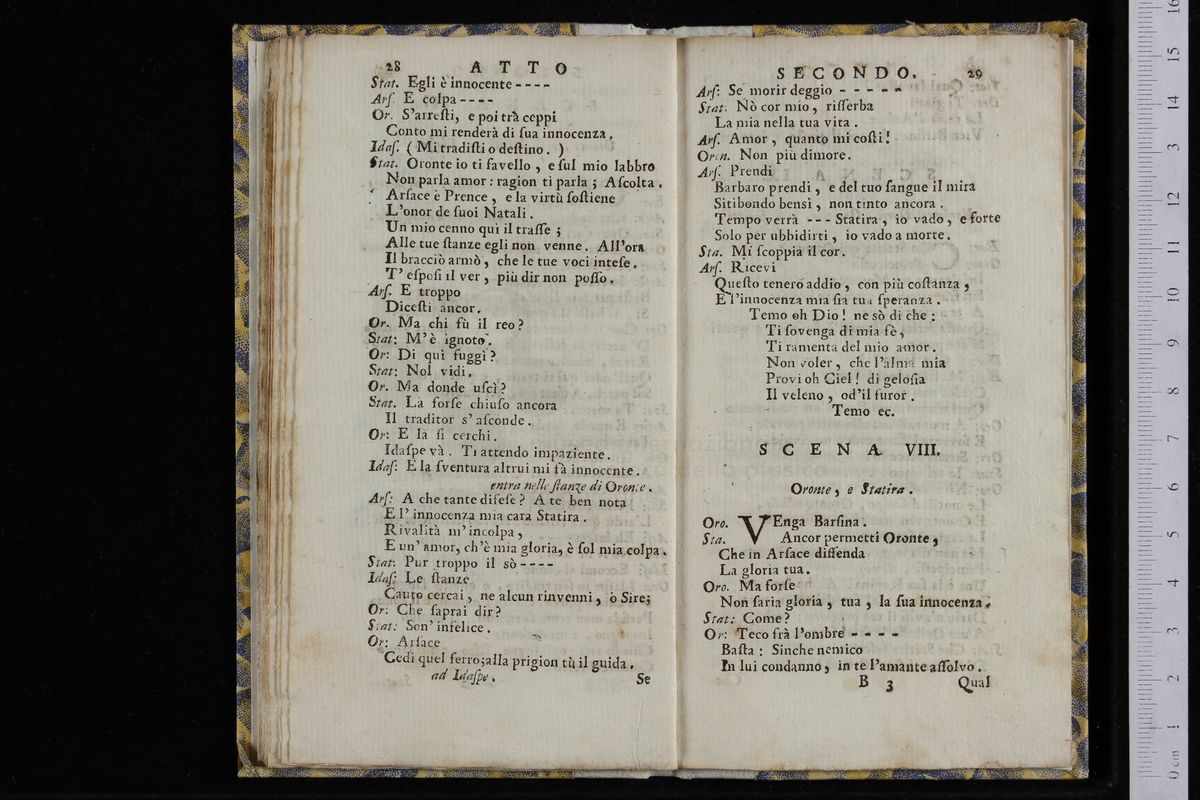 28 ATTO
Stat. Egli è innocente - - - -
Arſ. E colpa - - - -
Or. S'arreſti, e poi trà ceppi
Conto mi renderà di ſua innocenza.
Idaſ. ( Mi tradiſti o deſtino. )
Stat. Oronte io ti favello, e ſul mio labbro
Non parla amor: ragion ti parla; Aſcolta.
Arſace è Prence, e la virtù ſoſtiene
L'onor de ſuoi Natali.
Un mio cenno quì il traſſe;
Alle tue ſtanze egli non venne. All'ora
Il bracciò armò, che le tue voci inteſe.
T' eſpoſi il ver, più dir non poſſo.
Arſ. E troppo
Diceſti ancor.
Or. Ma chi fù il reo?
Stat: M'è ignoto.
Or: Di quì fuggì?
Stat: Nol vidi.
Or. Ma donde uſcì?
Stat. La forſe chiuſo ancora
Il traditor s' aſconde.
Or: E là ſi cerchi.
Idaſpe và. Ti attendo impaziente.
Idaſ: E la ſventura altrui mi fà innocente.
entra nelle ſtanze di Oronte.
Arſ: A che tante difeſe? A te ben nota
E l' innocenza mia cara Statira.
Rivalità m'incolpa,
E un' amor, ch'è mia gloria, è ſol mia colpa.
Stat: Pur troppo il sò - - - -
Idaſ: Le ſtanze
Cauto cercai, ne alcun rinvenni, ò Sire;
Or: Che ſaprai dir?
Stat: Son' infelice.
Or: Arſace
Cedi quel ferro; alla prigion tù il guida.
ad Idaſpe.
Se
SECONDO. 29
Arſ: Se morir deggio - - - - -
Stat. Nò cor mio, riſſerba
La mia nella tua vita.
Arſ. Amor, quanto mi coſti!
Oron. Non più dimore.
Arſ. Prendi
Barbaro prendi, e del tuo ſangue il mira
Sitibondo bensì, non tinto ancora.
Tempo verrà - - - Statira, io vado, e forte
Solo per ubbidirti, io vado a morte.
Sta. Mi ſcoppia il cor.
Arſ. Ricevi
Queſto tenero addio, con più coſtanza,
E l'innocenza mia ſia tua ſperanza.
Temo oh Dio! ne sò di che:
Ti ſovenga di mia fè,
Ti ramenta del mio amor.
Non voler, che l'alma mia
Provi oh Ciel! di geloſia
Il veleno, od'il furor.
Temo ec.
SCENA VIII.
Oronte, e Statira.
Oro. VEnga Barſina.
Sta. Ancor permetti Oronte,
Che in Arſace diffenda
La gloria tua.
Oro. Ma forſe
Non ſaria gloria, tua, la ſua innocenza.
Stat: Come?
Or: Teco frà l'ombre - - - -
Baſta: Sinche nemico
In lui condanno, in te l'amante aſſolvo.
B 3 Qual